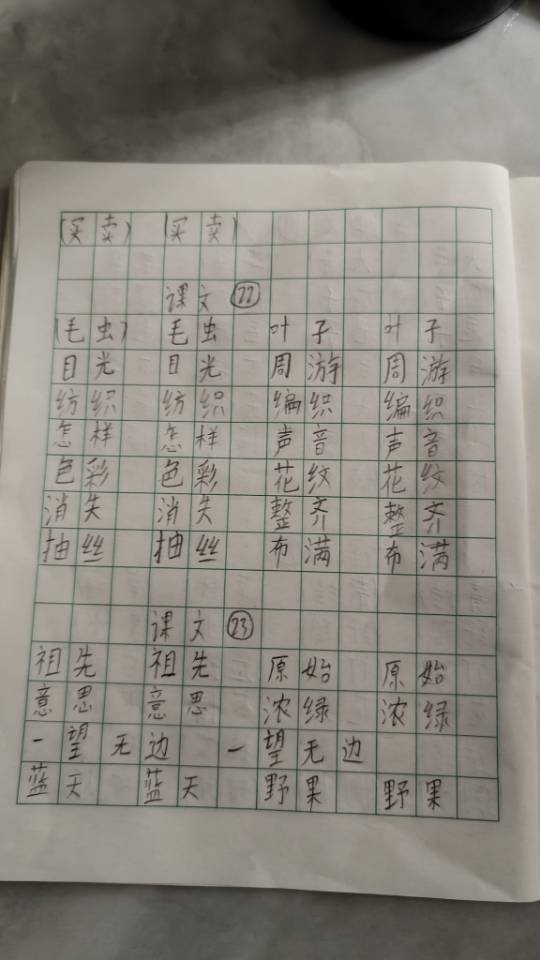 (买卖) (买卖)
课文 22
(毛虫) 毛虫 叶子 叶子
目光 目光 周游 周游
纺织 纺织 编织 编织
怎样 怎样 声音 声音
色彩 色彩 花纹 花纹
消失 消失 整齐 整齐
抽丝 抽丝 布满 布满
课文 23
祖先 祖先 原始 原始
意思 意思 浓绿 浓绿
一望无边 一望无边
蓝天 蓝天 野果 野果